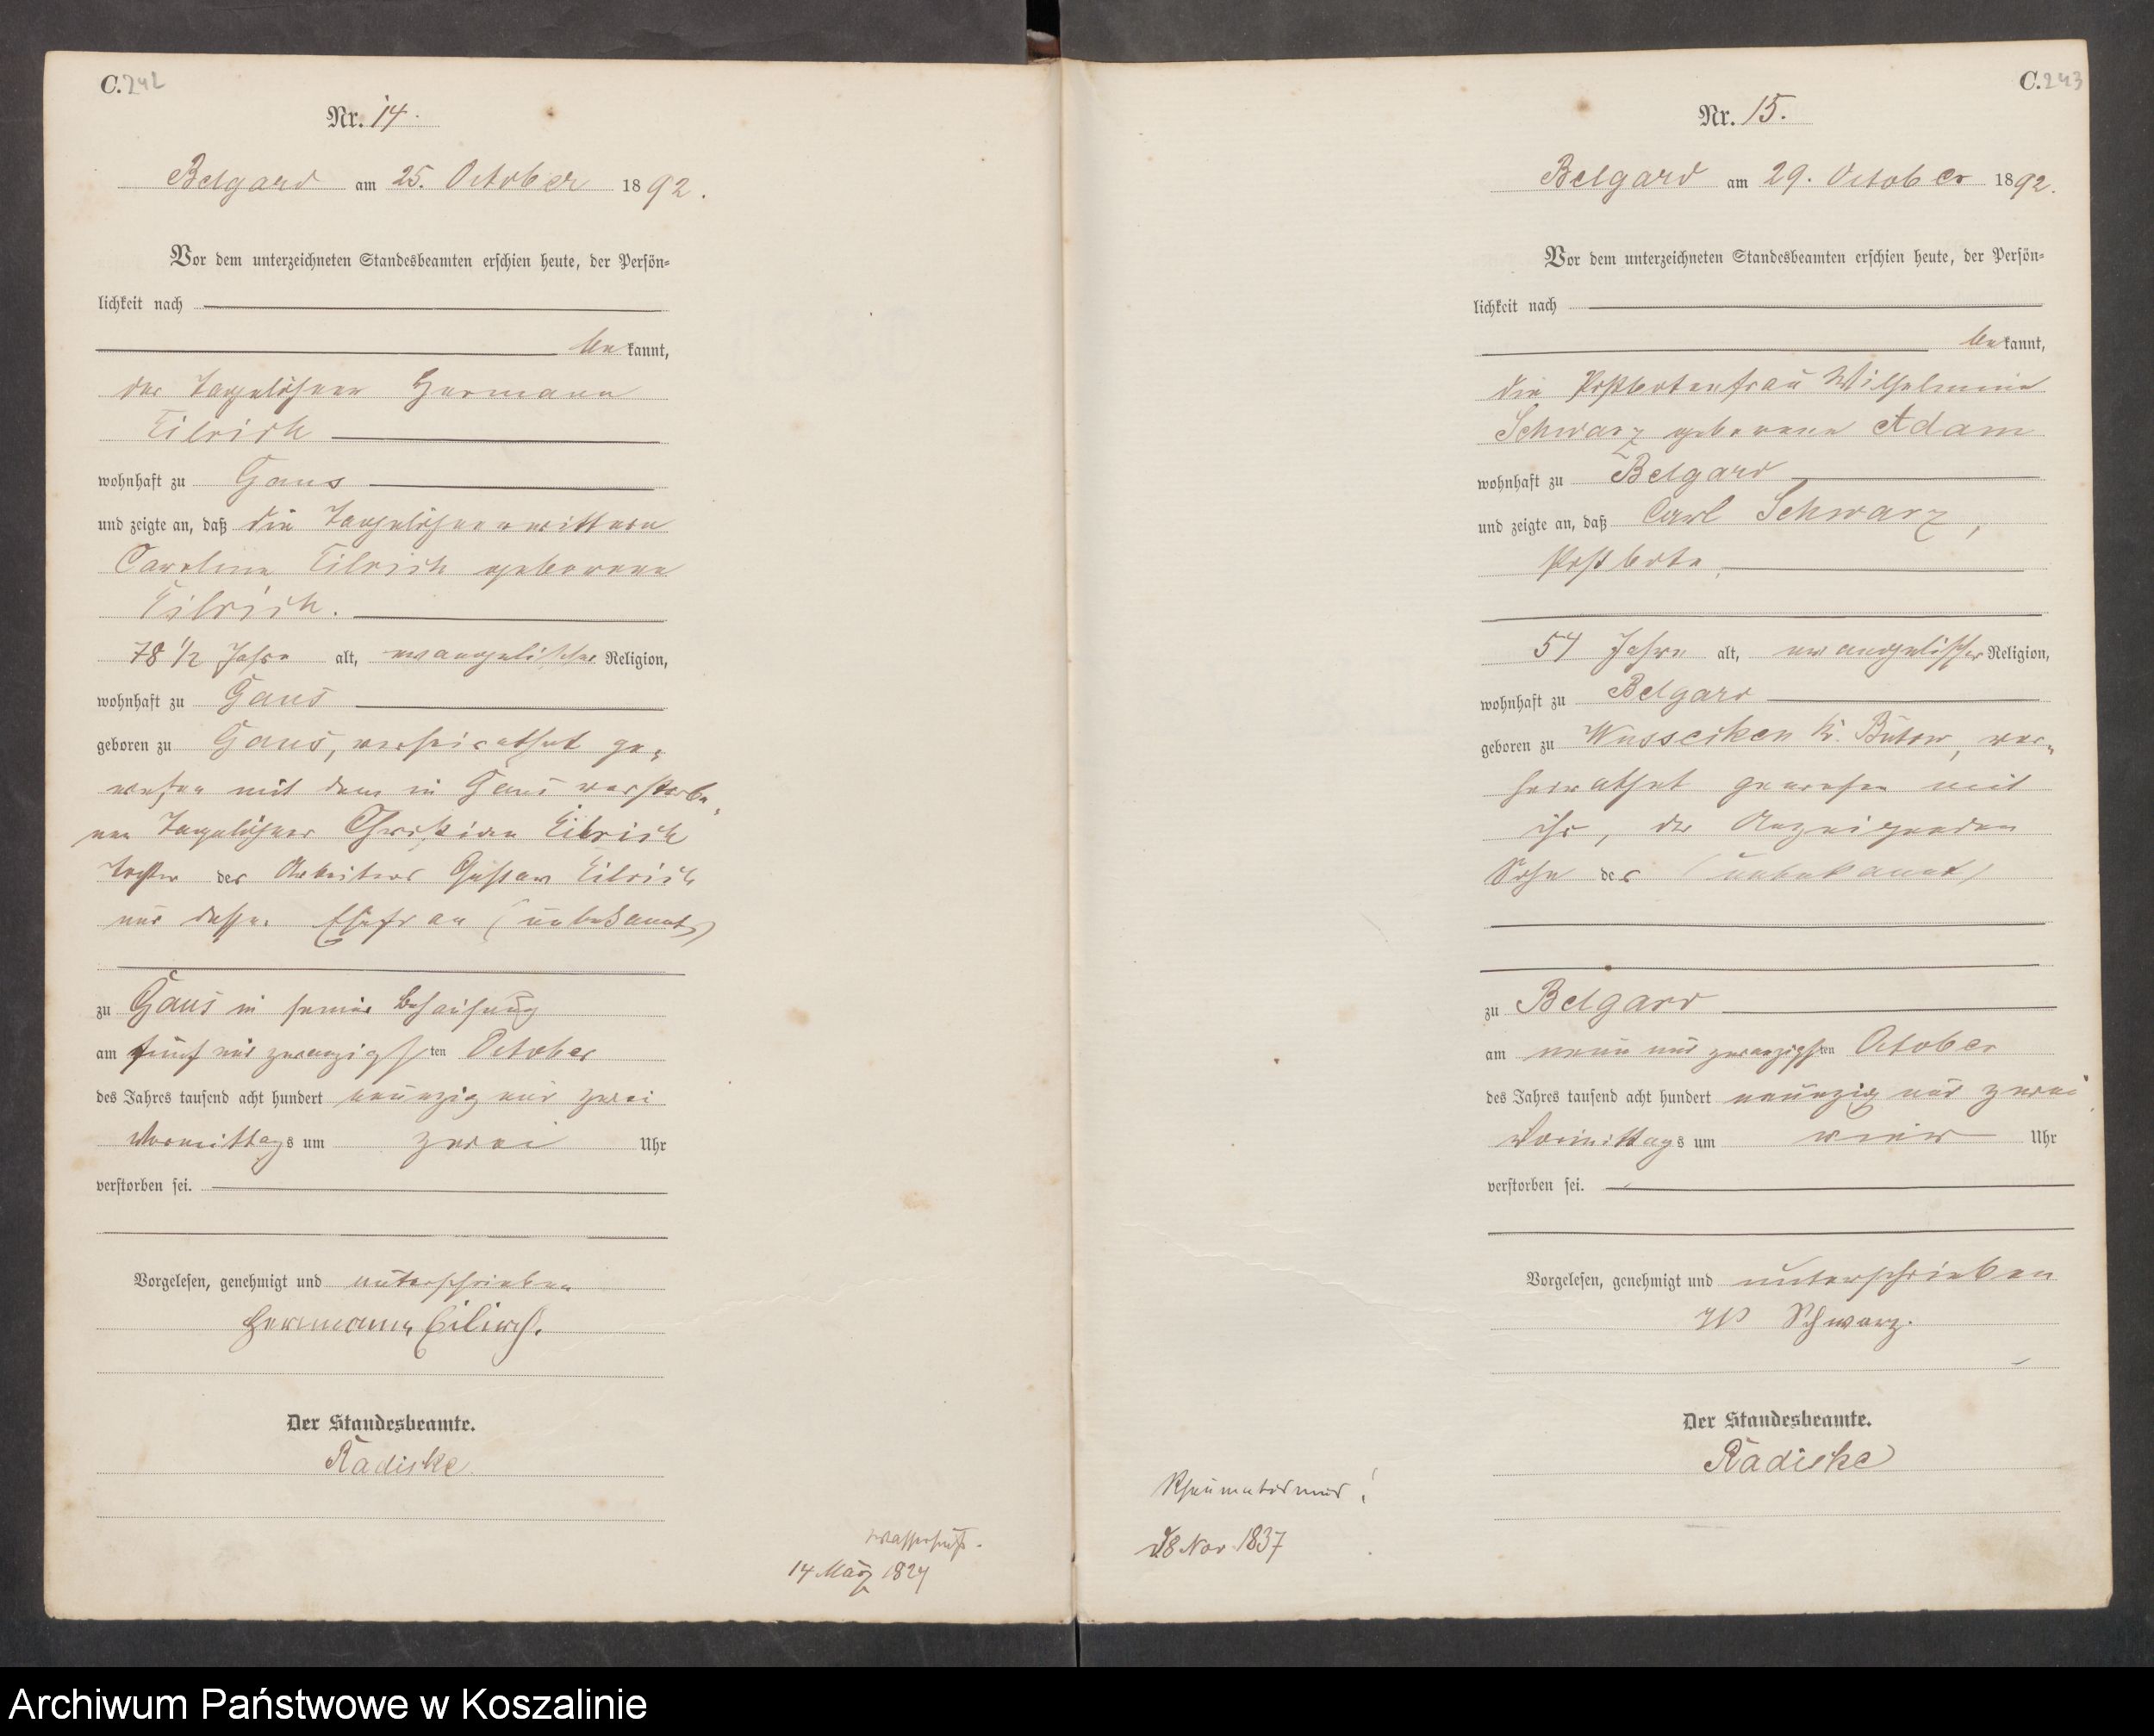 C. 242
Nr. 14.
Belgard am 25. October 1892.
Vor dem unterzeichneten Standesbeamten erschien heute, der Persön-
lichkeit nach
bekannt,
der Tagelöhner Hermann
Eilrich
wohnhaft zu Gans
und zeigte an, daß die Tagelöhnerwittwe
Caroline Eilrich geborene
Eilrich.
78 1/2 Jahre alt, evangelischer Religion,
wohnhaft zu Gans
geboren zu Gans, verheirathet ge-
wesen mit dem in Gans verstorbe-
nen Tagelöhner Christian Eilrich
Tochter des Arbeiters Gustav Eilrich
und dessen Ehefrau (unbekannt)
zu Gans in seiner Behausung
am fünf und zwanzigsten October
des Jahres tausend acht hundert neunzig und zwei
Vormittags um zwei Uhr
verstorben sei.
Vorgelesen, genehmigt und unterschrieben
Hermann Eilrich.
Der Standesbeamte.
Radiske
Wassersucht.
14 März 1824
C. 243
Nr. 15.
Belgard am 29. October 1892.
Vor dem unterzeichneten Standesbeamten erschien heute, der Persön-
lichkeit nach
bekannt,
die Postbotenfrau Wilhelmine
Schwarz geborene Adam
wohnhaft zu Belgard
und zeigte an, daß Carl Schwarz,
Postbote,
54 Jahre alt, evangelischer Religion,
wohnhaft zu Belgard
geboren zu Wusseken Kr. Bütow, ver-
heirathet gewesen mit
ihr, der Anzeigenden
Sohn der (unbekannt)
zu Belgard
am neun und zwanzigsten October
des Jahres tausend acht hundert neunzig und zwei
Vormittags um vier Uhr
verstorben sei.
Vorgelesen, genehmigt und unterschrieben
W Schwarz.
Der Standesbeamte.
Radiske
Rheumatismus!
Nov. 1837
Archiwum Państwowe w Koszalinie